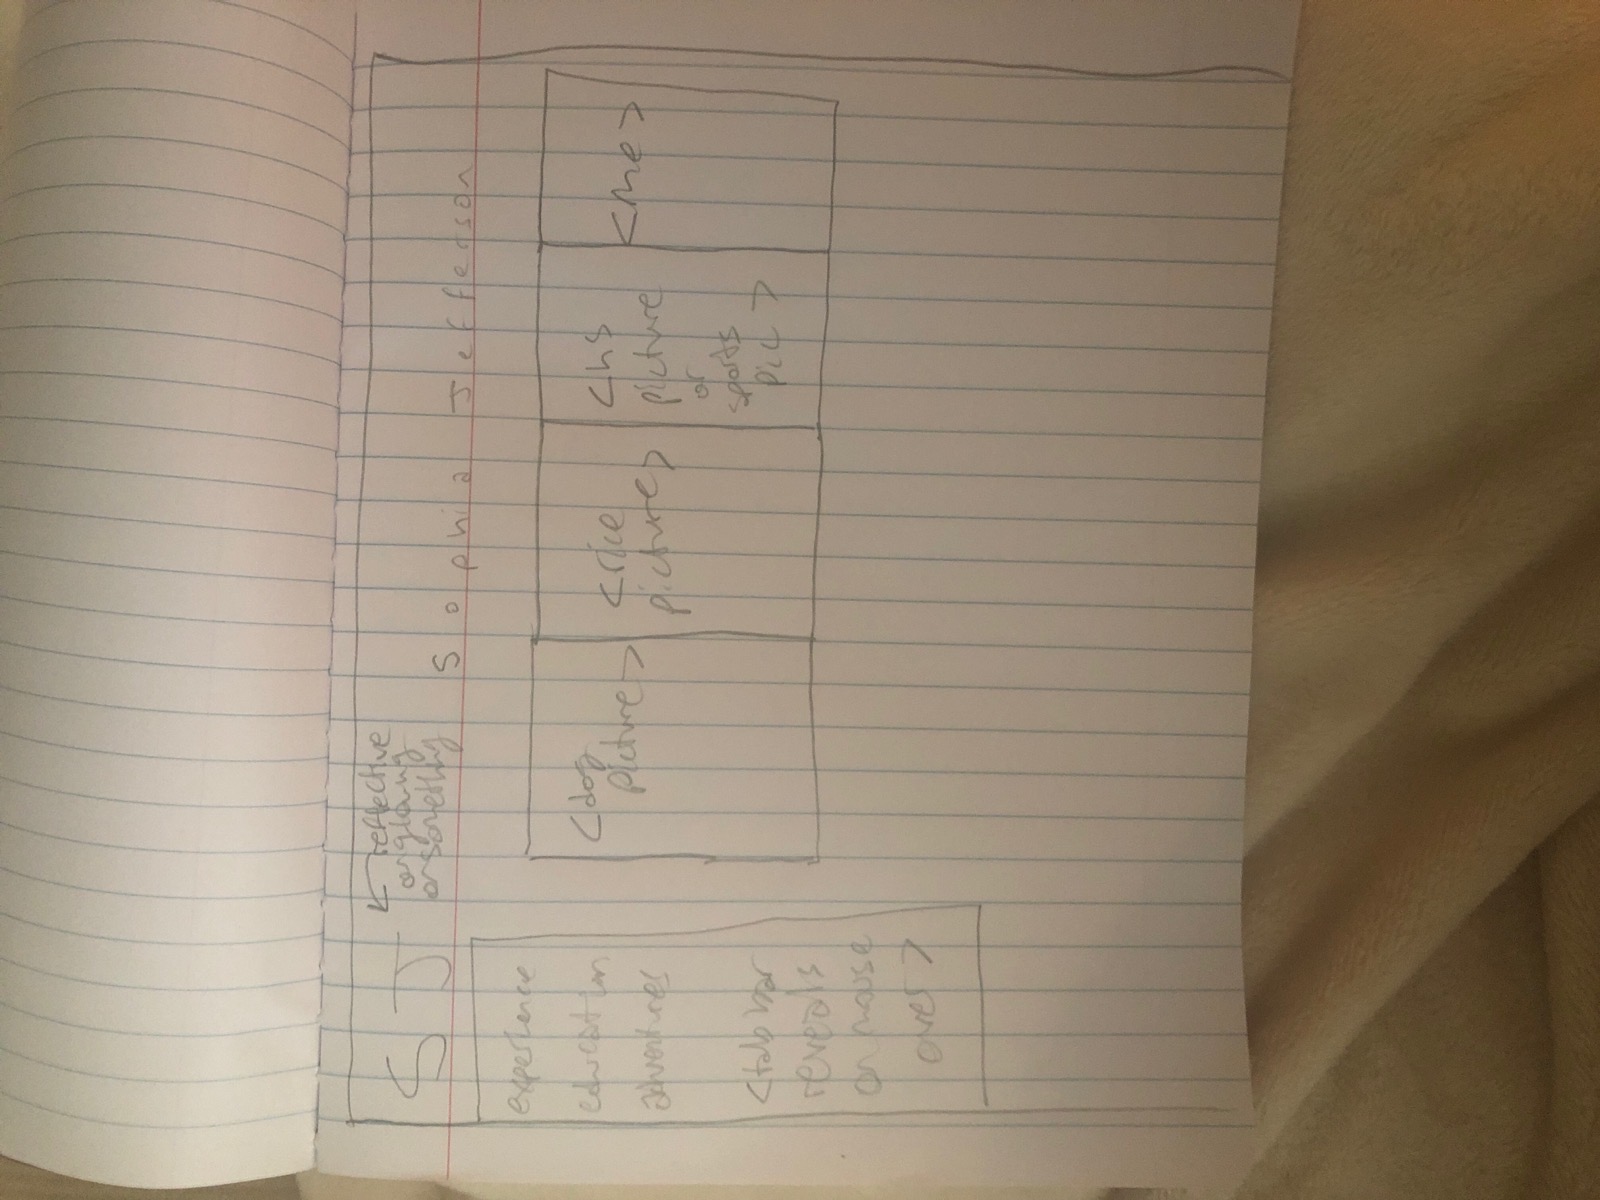 SJ
reflective
or glowing
or something
Sophia Jefferson
experience
education
adventures
<tab bar
reveals
on mouse
over>
<dog
picture>
<rice
picture>
<hs
picture
or
sports
pic>
<me>